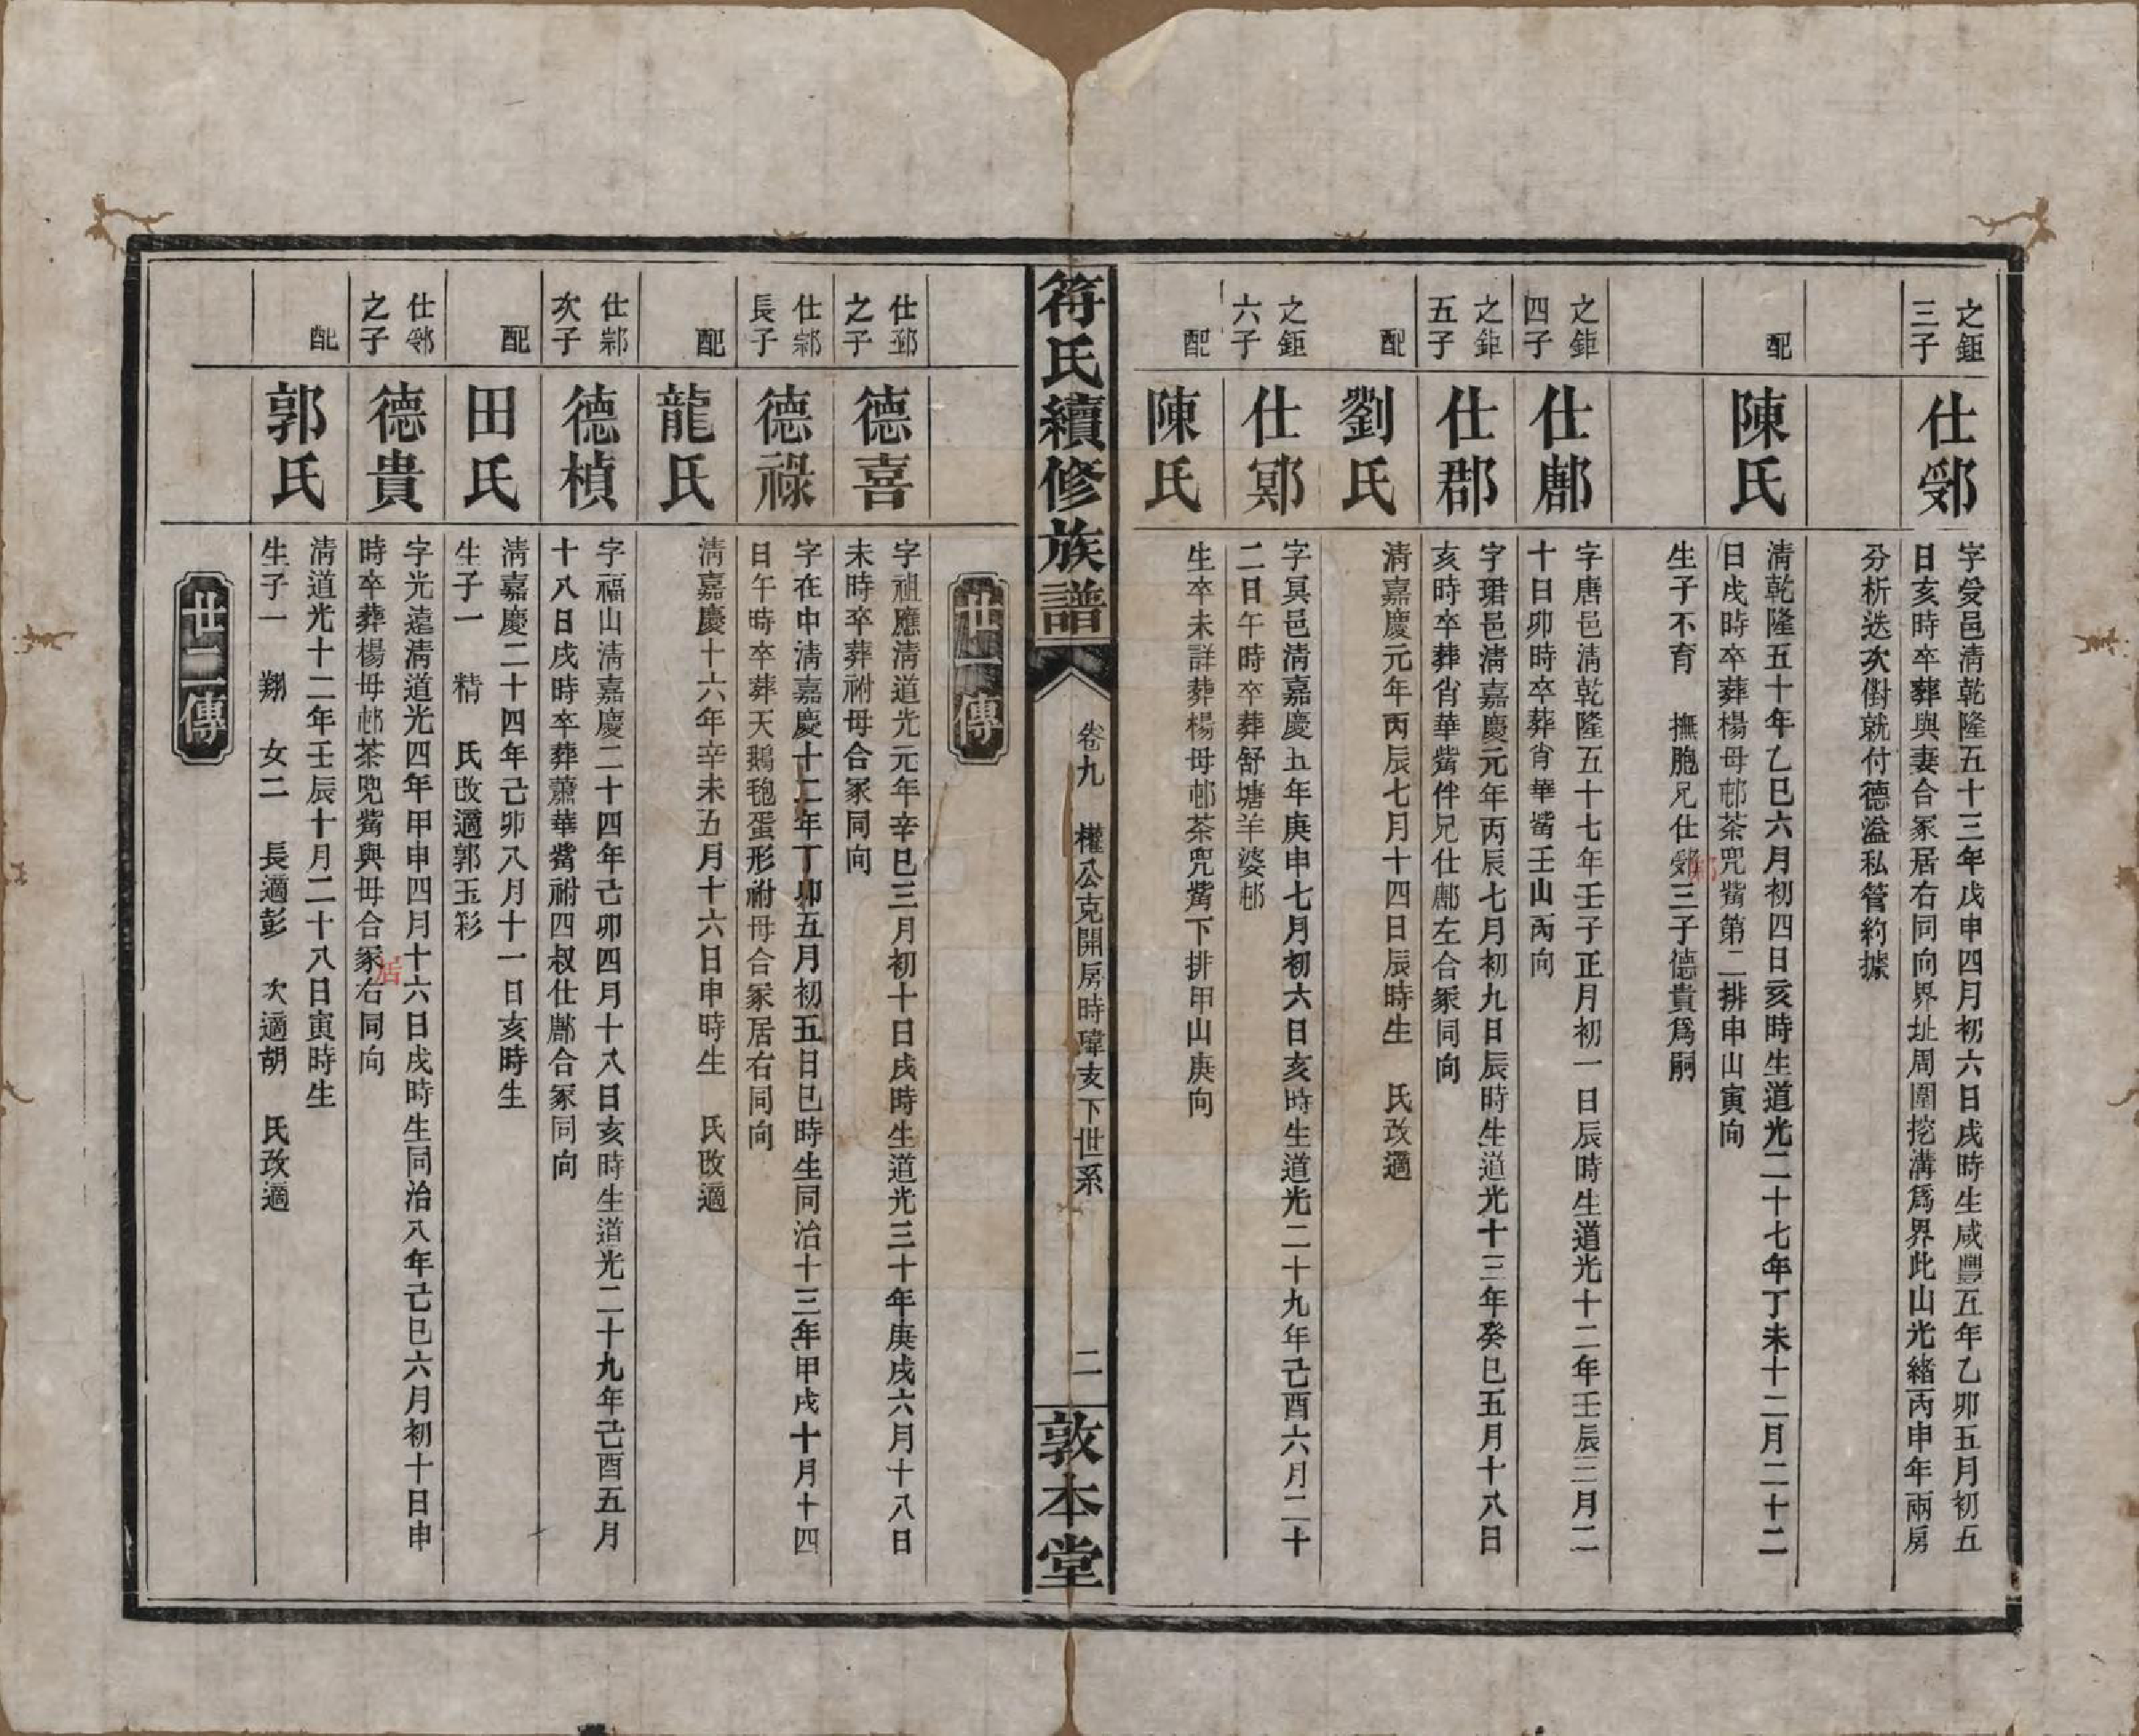 之鉅
三子
仕𨛭
字受邑淸乾隆五十三年戊申四月初六日戌時生咸豐五年乙卯五月初五
日亥時卒葬與妻合冢居右同向界址周圍挖溝爲界此山光緒丙申年兩房
分析迭次對就付德溢私管約據
配
陳氏
淸乾隆五十年乙巳六月初四日亥時生道光二十七年丁未十二月二十二
日戌時卒葬楊毋邨茶兜觜第二排申山寅向
生子不育 撫胞兄仕三子德貴爲嗣
之鉅
四子
仕鄌
字唐邑淸乾隆五十七年壬子正月初一日辰時生道光十二年壬辰三月二
十日卯時卒葬肖華觜壬山丙向
之鉅
五子
仕郡
字珺邑淸嘉慶元年丙辰七月初九日辰時生道光十三年癸巳五月十八日
亥時卒葬肖華觜伴兄仕鄌左合冢同向
配
劉氏
淸嘉慶元年丙辰七月十四日辰時生 氏改適
之鉅
六子
仕鄍
字冥邑淸嘉慶五年庚申七月初六日亥時生道光二十九年己酉六月二十
二日午時卒葬舒塘羊婆邨
配
陳氏
生卒未詳葬楊毋邨茶兜觜下排甲山庚向
符氏續修族譜
卷九 權公克開房時瑋支下世系
二
敦本堂
廿一傳
仕
之子
德喜
字祖應淸道光元年辛巳三月初十日戌時生道光三十年庚戌六月十八日
未時卒葬祔毋合冢同向
仕
長子
德祿
字在中淸嘉慶十二年丁卯五月初五日巳時生同治十三年甲戌十月十四
日午時卒葬天鵝𣮫蛋形祔毋合冢居右同向
配
龍氏
淸嘉慶十六年辛未五月十六日申時生 氏改適
仕
次子
德楨
字福山淸嘉慶二十四年己卯四月十八日亥時生道光二十九年己酉五月
十八日戌時卒葬蕭華觜祔四叔仕鄌合冢同向
配
田氏
淸嘉慶二十四年己卯八月十一日亥時生
生子一 精 氏改適郭玉彩
仕
之子
德貴
字光遠淸道光四年甲申四月十六日戌時生同治八年己巳六月初十日申
時卒葬楊毋邨茶兜觜與毋合冢居右同向
配
郭氏
淸道光十二年壬辰十月二十八日寅時生
生子一 翔 女二 長適彭 次適胡 氏改適
廿二傳